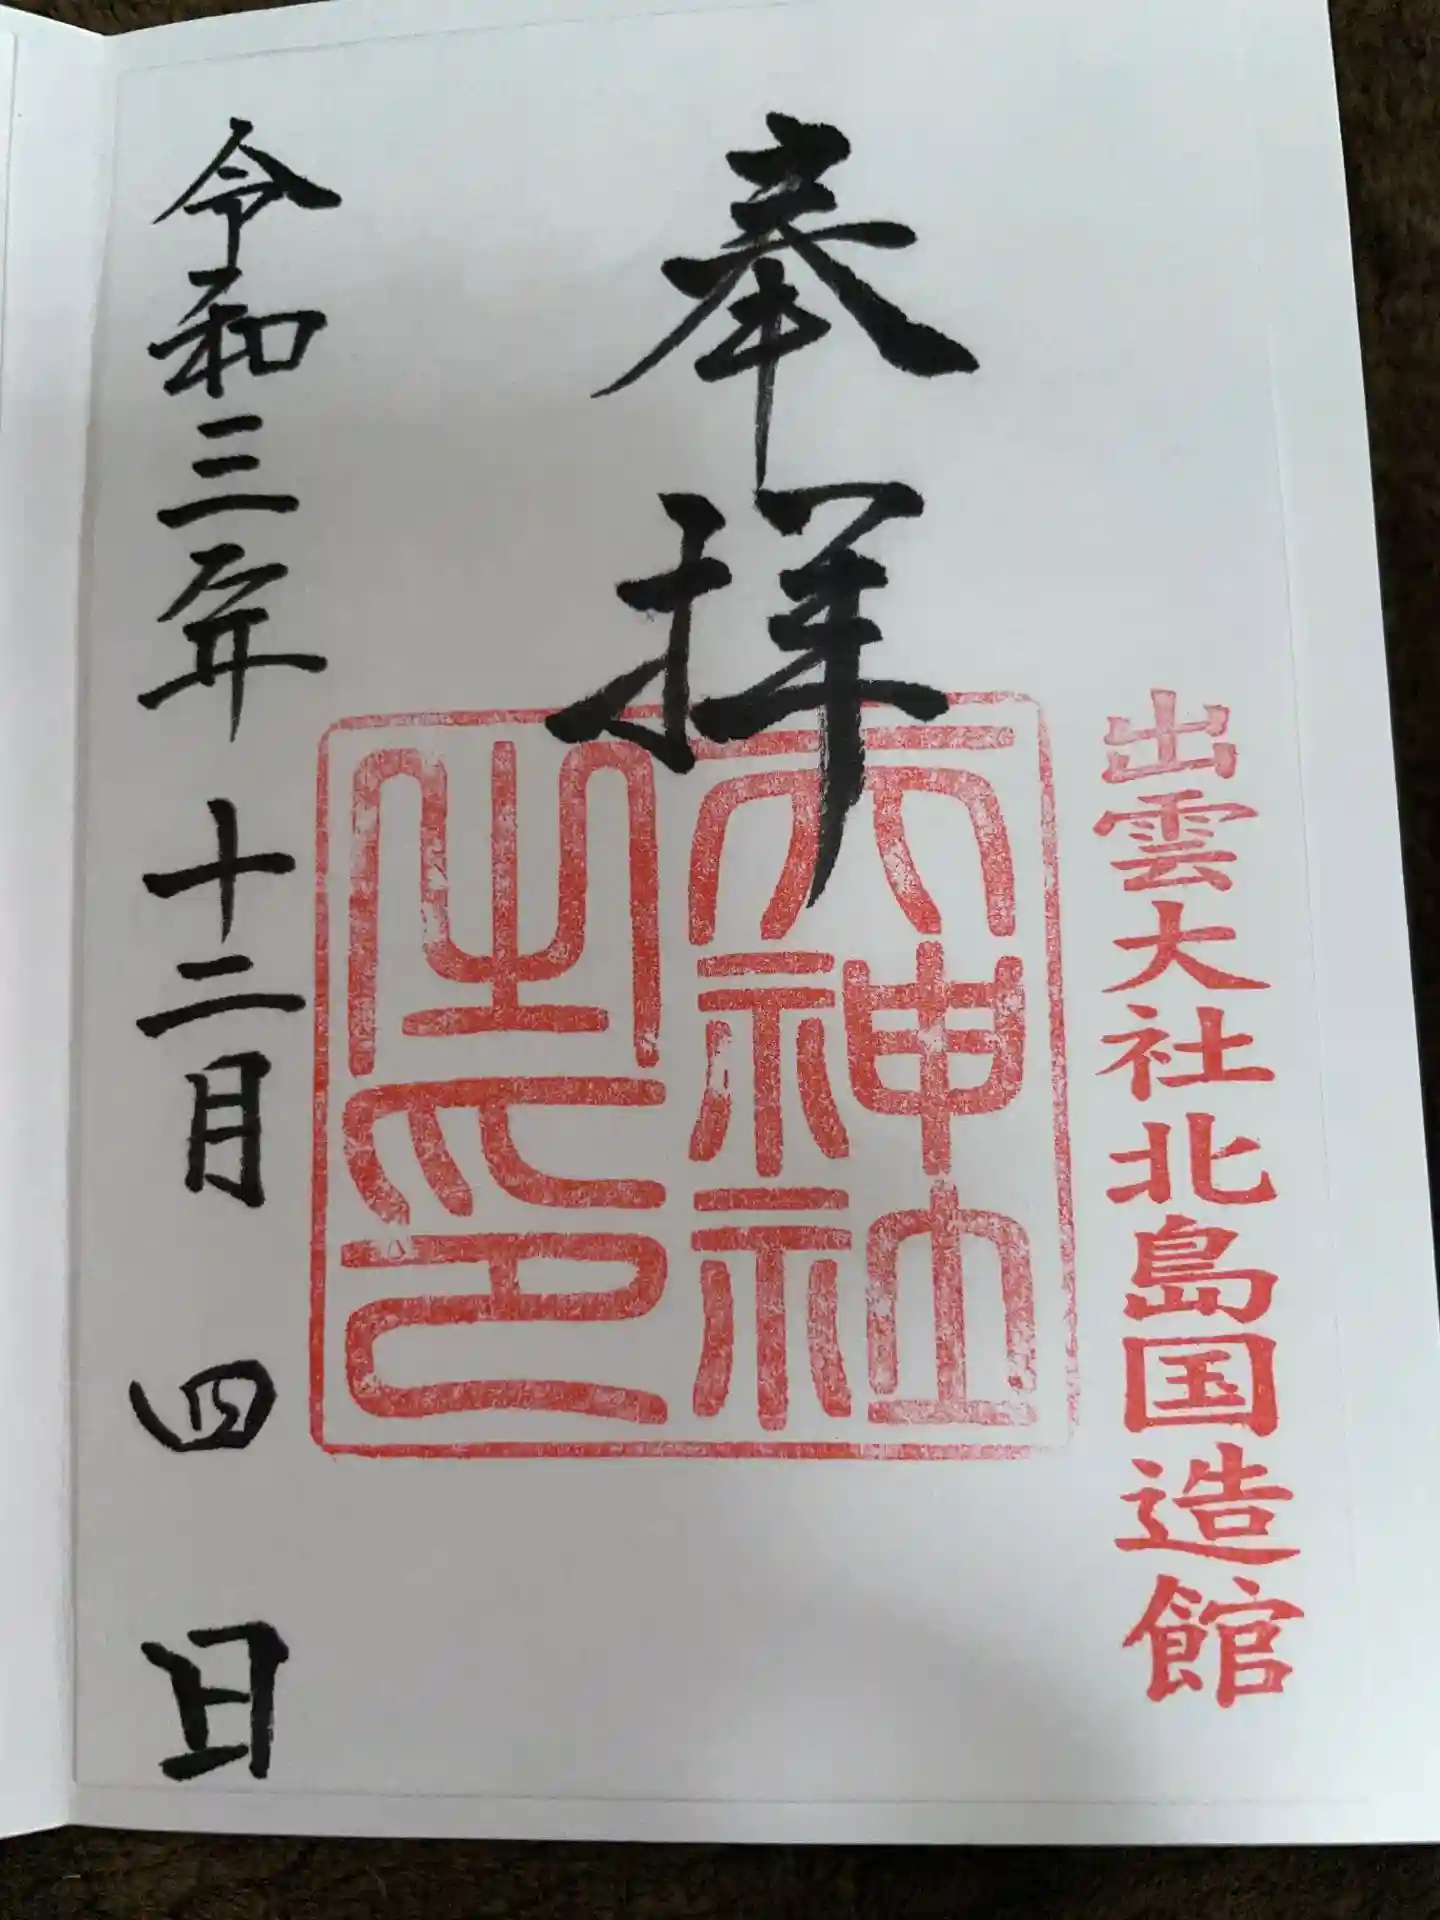 出雲大社北島国造館
奉拝
天神社
之印
令和三年十二月四日